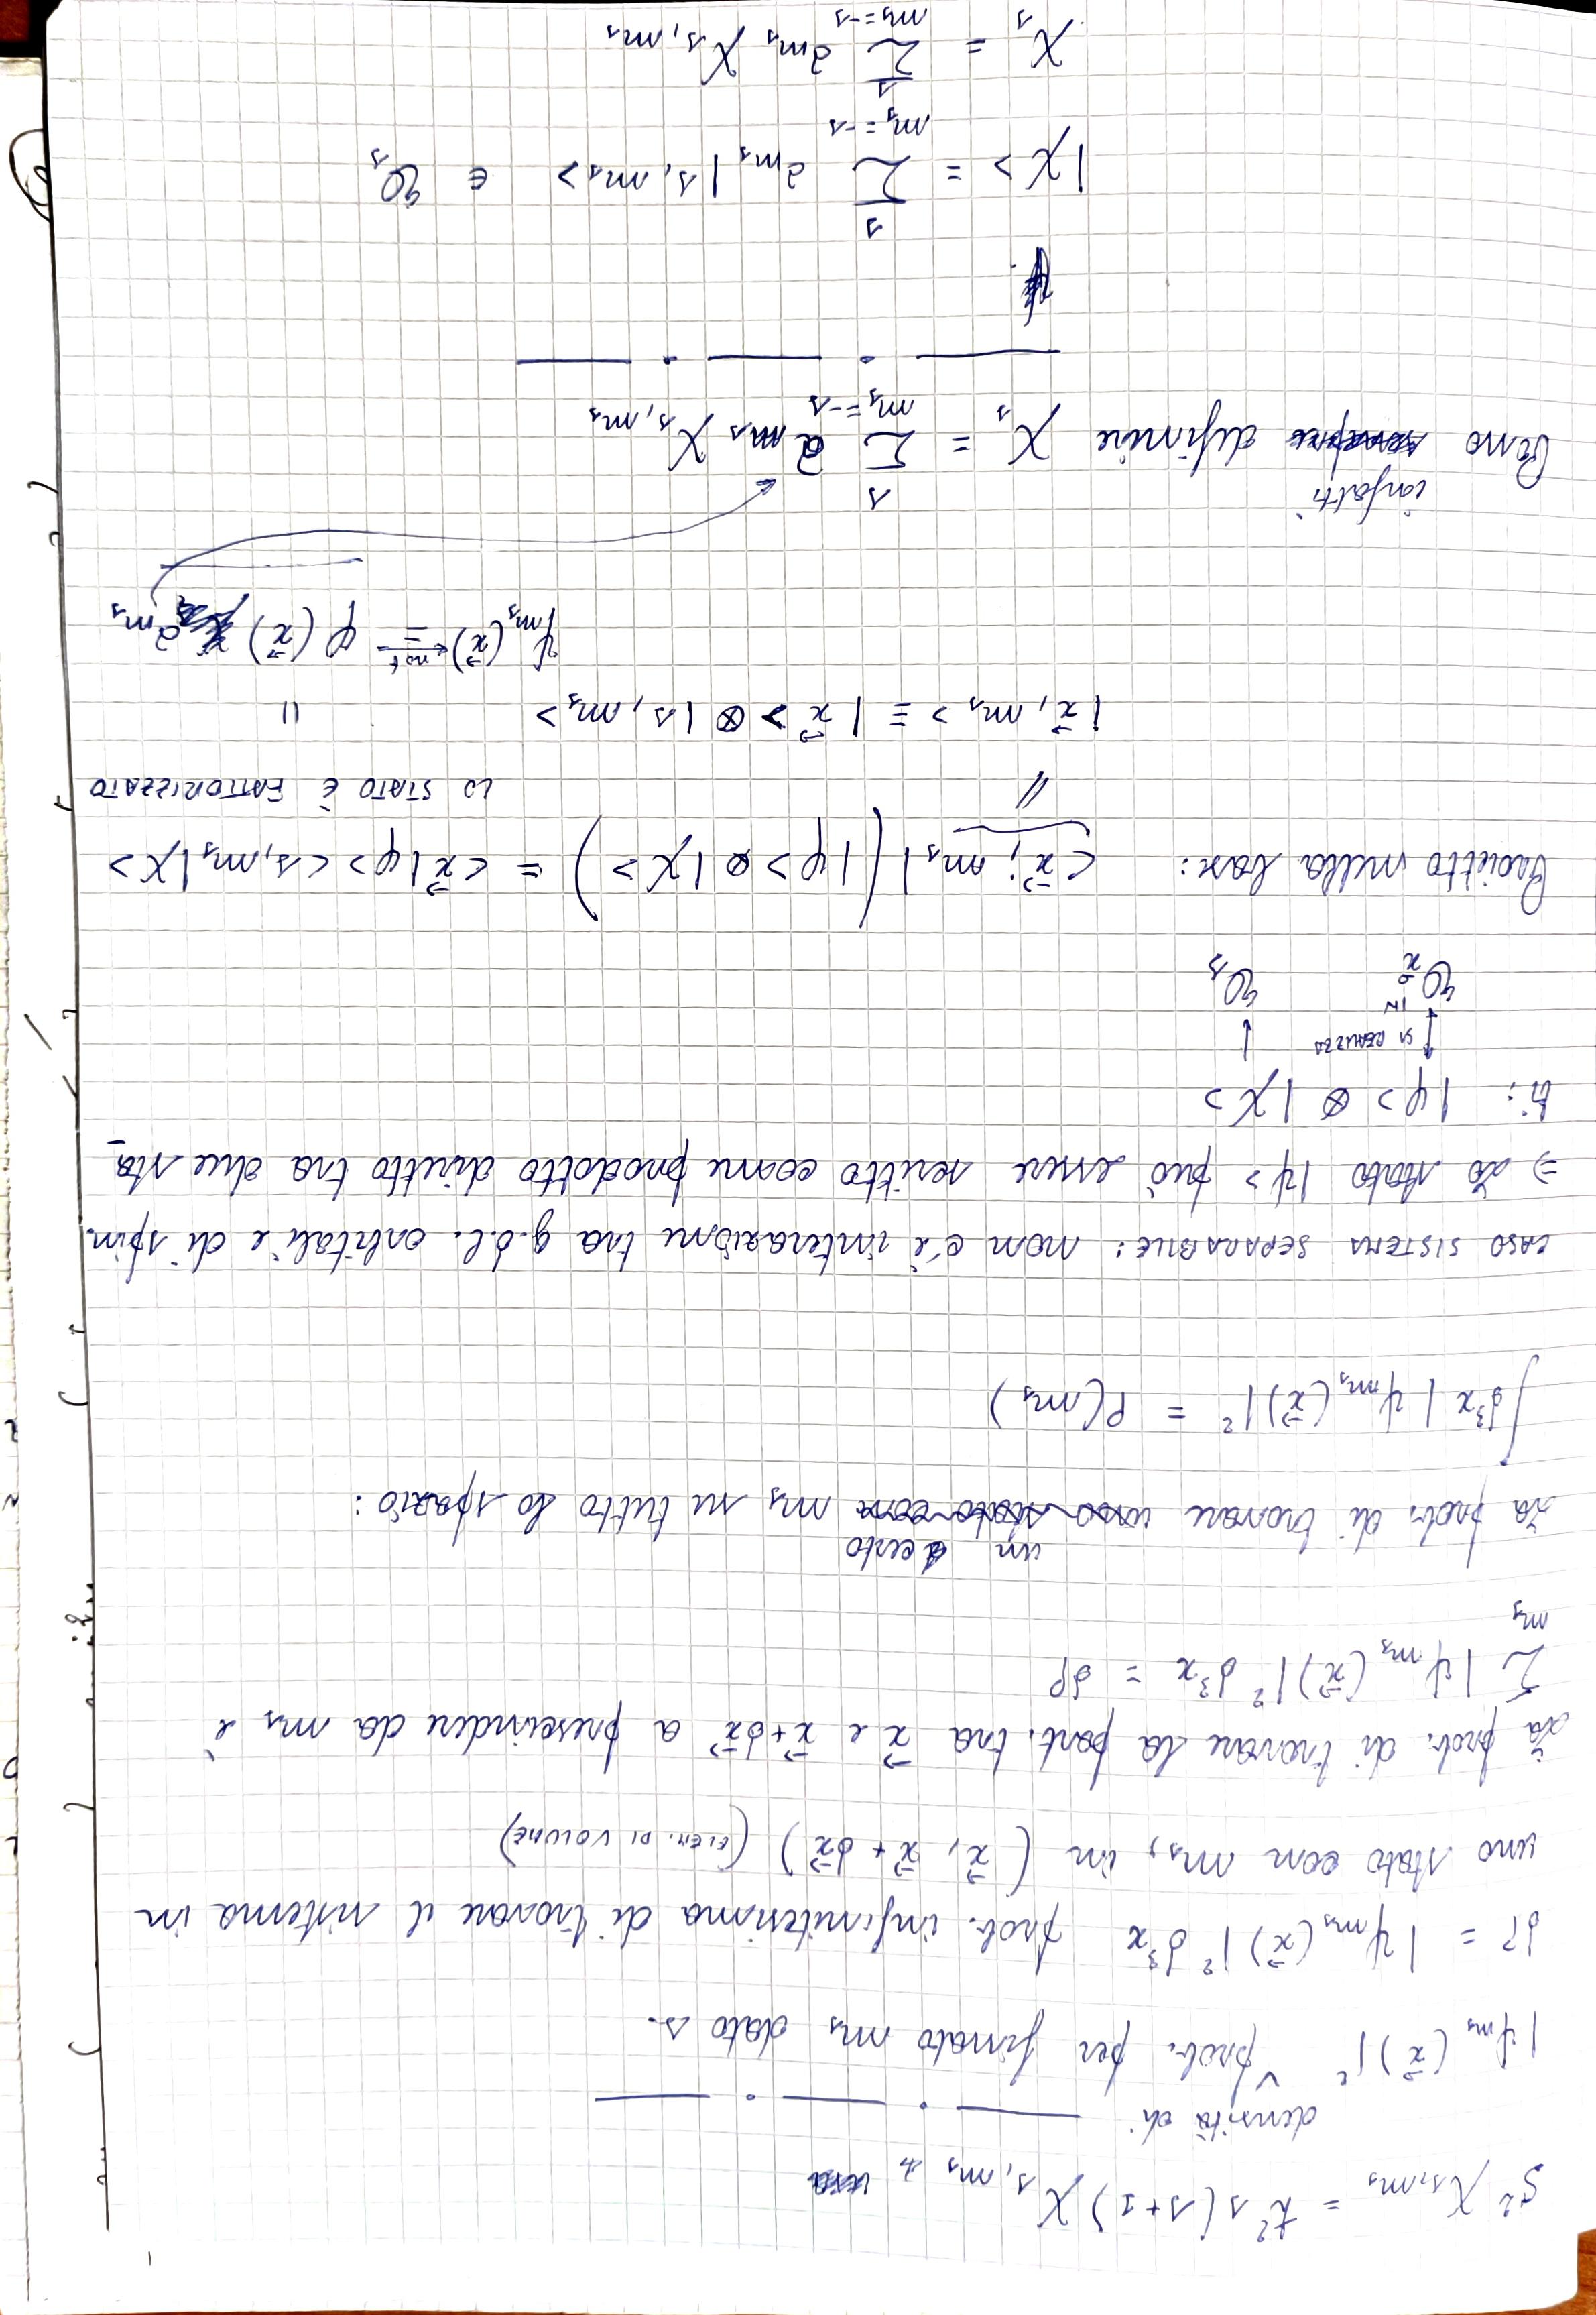 S² χ_{s,m_s} = ħ² s(s+1) χ_{s,m_s}
densità di
|ψ_{m_s}(x⃗)|² prob. per fissato m_s dato s.
dP = |ψ_{m_s}(x⃗)|² d³x prob. infinitesima di trovare il sistema in
uno stato con m_s, in (x⃗, x⃗+dx⃗) (ELEM. DI VOLUME)
La prob. di trovare la part. tra x⃗ e x⃗+dx⃗ a prescindere da m_s è
Σ_{m_s} |ψ_{m_s}(x⃗)|² d³x = dP
un certo
La prob. di trovare uno stato con m_s su tutto lo spazio:
∫d³x |ψ_{m_s}(x⃗)|² = P(m_s)
CASO SISTEMA SEPARABILE: non c'è interazione tra g.d.l. orbitali e di spin.
⇒ Lo stato |ψ> può essere scritto come prodotto diretto tra due sta_
ti: |φ> ⊗ |χ>
↕ SI REALIZZA IN ↓
ℋ_{x⃗} ℋ_s
Proietto nella base: <x⃗; m_s| (|φ> ⊗ |χ>) = <x⃗|φ> <s,m_s|χ>
LO STATO È FATTORIZZATO
|x⃗, m_s> ≡ |x⃗> ⊗ |s, m_s> =
ψ_{m_s}(x⃗) not = φ(x⃗) a_{m_s}
infatti
Posso definire χ_s = Σ_{m_s=-s}^{s} a_{m_s} χ_{s,m_s}
|χ> = Σ_{m_s=-s}^{s} a_{m_s} |s, m_s> ∈ ℋ_s
χ_s = Σ_{m_s=-s}^{s} a_{m_s} χ_{s,m_s}